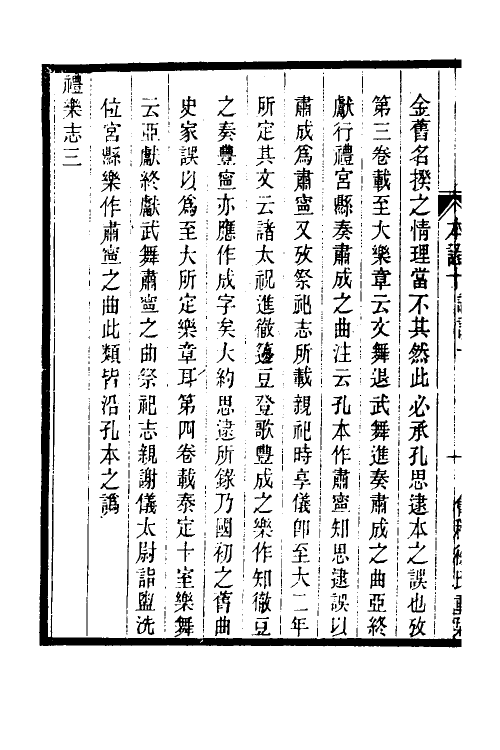 金舊名揆之情理當不其然此必承孔思逮本之誤也攷
第三卷載至大樂章云文舞退武舞進奏肅成之曲亞終
獻行禮宮縣奏肅成之曲注云孔本作肅寧知思逮誤以
肅成爲肅寧又攷祭祀志所載親祀時享儀卽至大二年
所定其文云諸太祝進徹籩豆登歌豐成之樂作知徹豆
之奏豐寧亦應作成字矣大約思逮所錄乃國初之舊曲
史家誤以爲至大所定樂章耳第四卷載泰定十室樂舞
云亞獻終獻武舞肅寧之曲祭祀志親謝儀太尉詣盥洗
位宮縣樂作肅寧之曲此類皆沿孔本之譌
禮樂志三